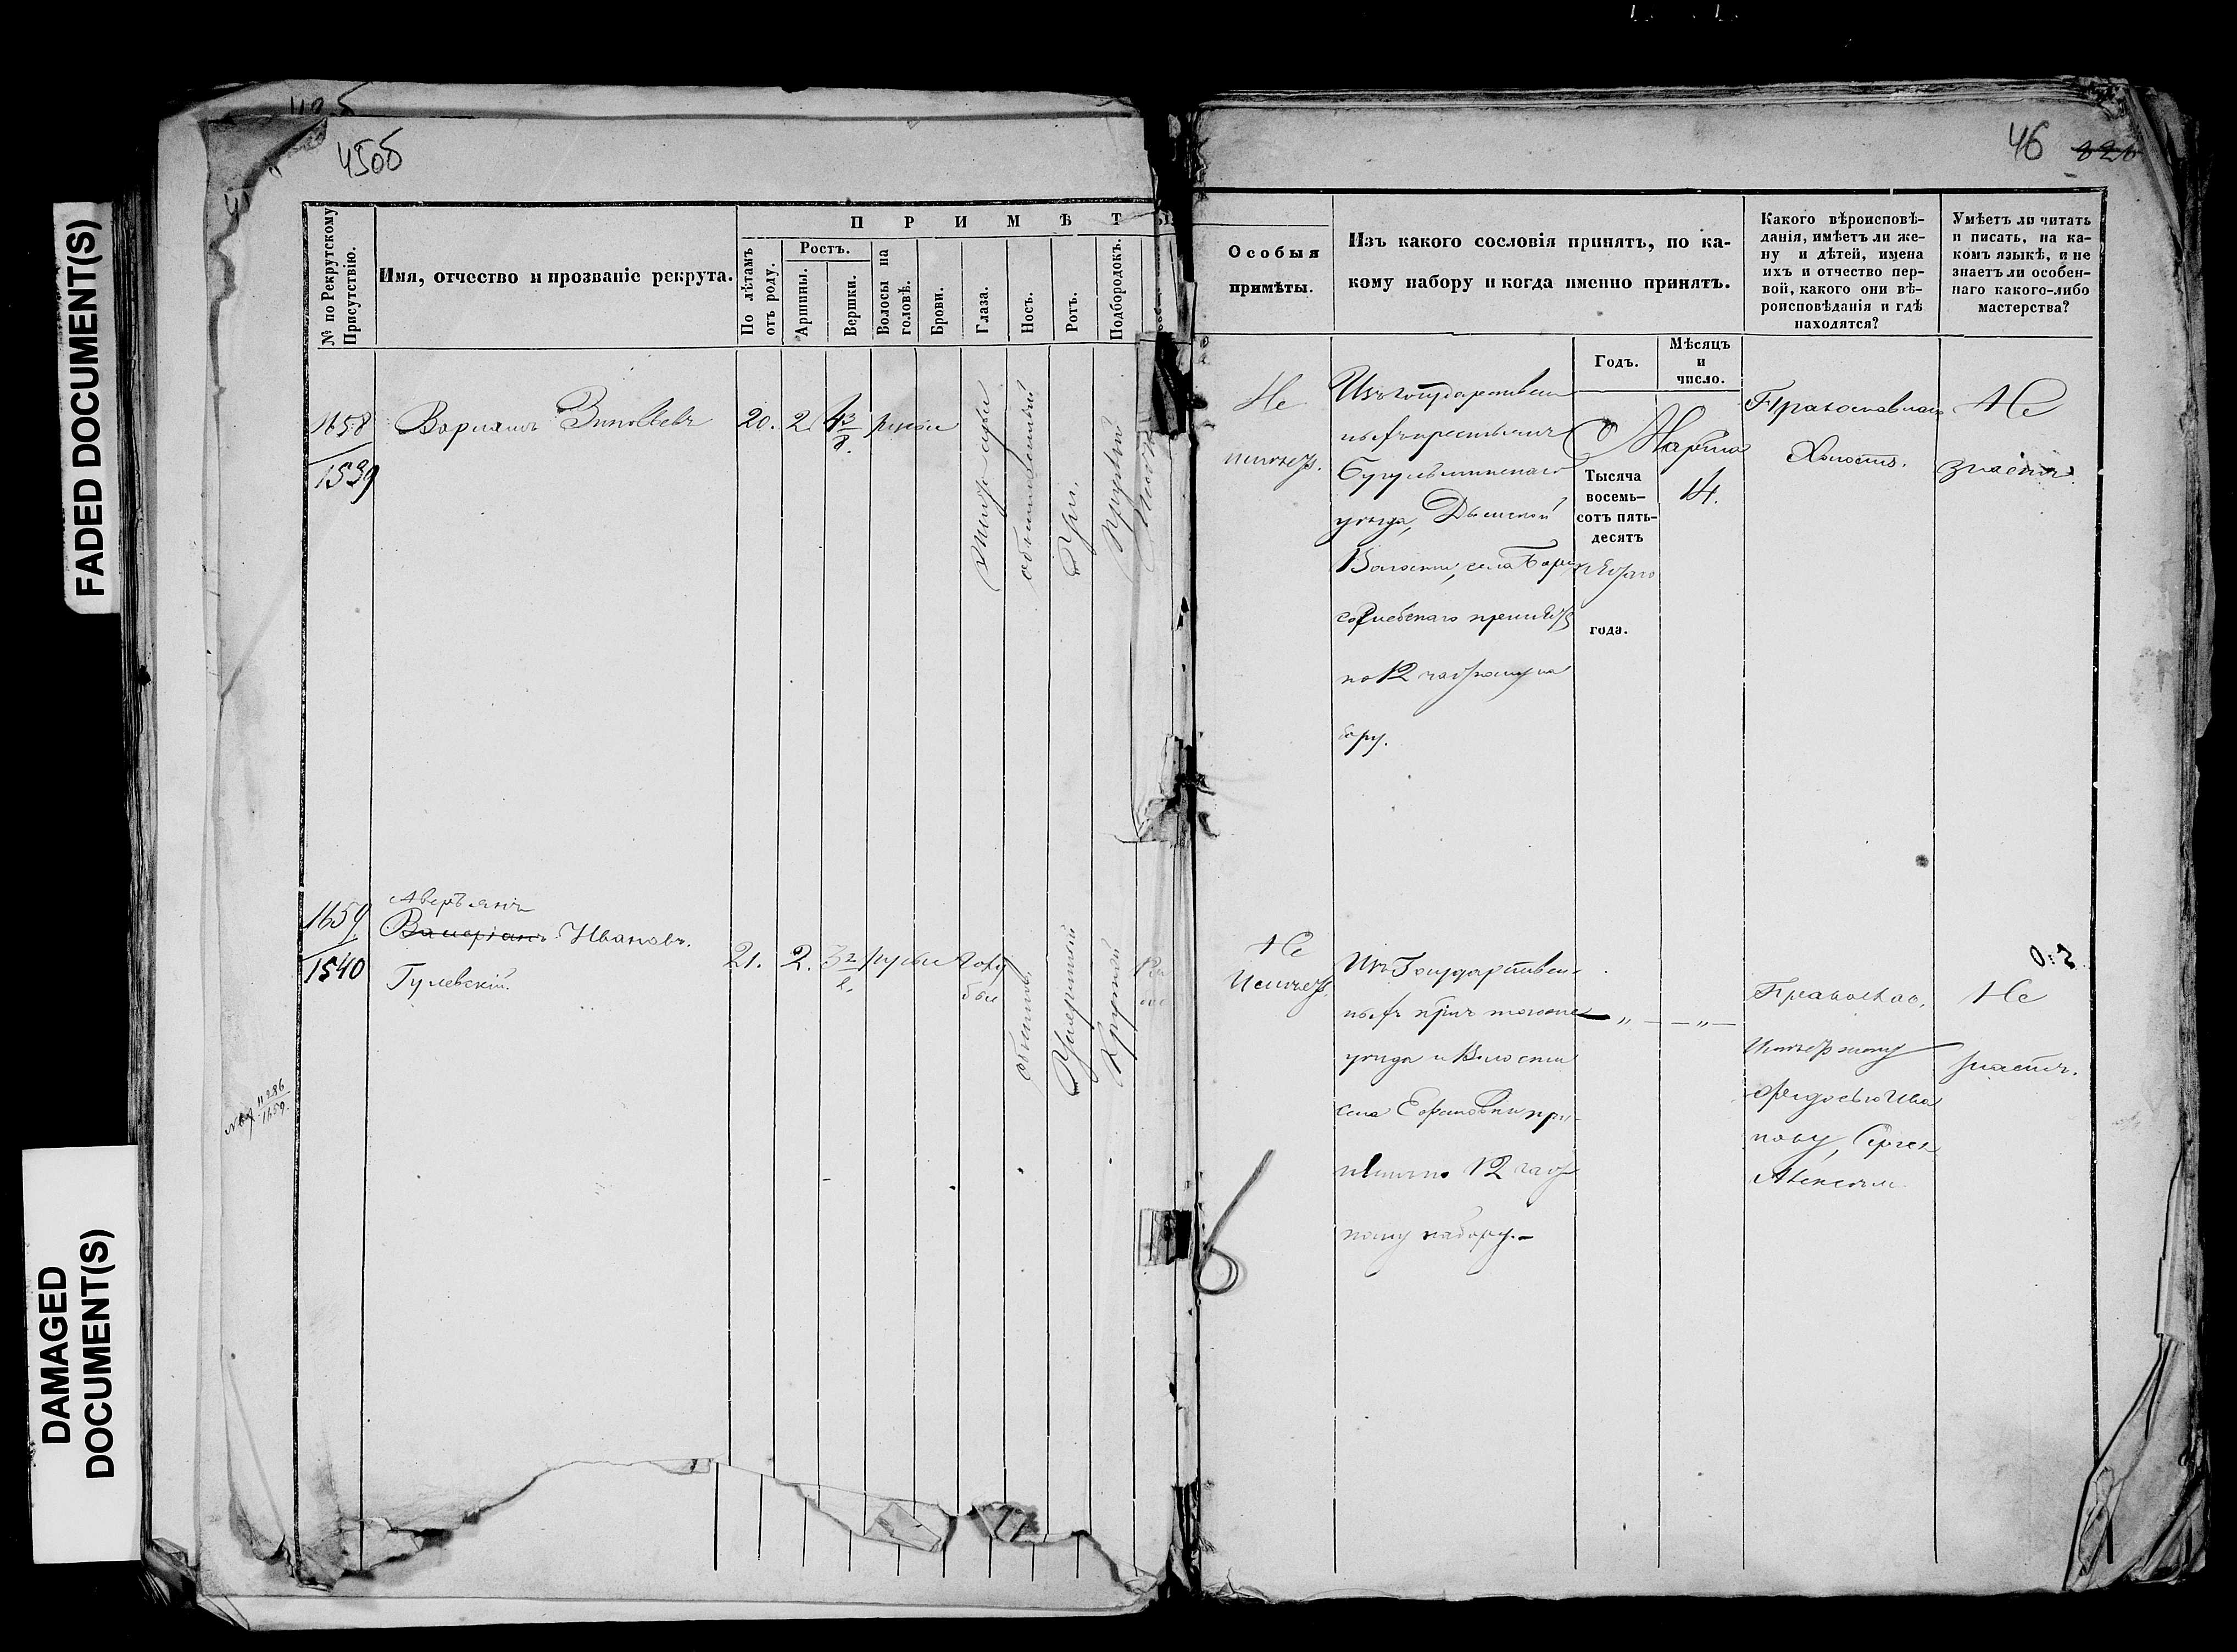 FADED DOCUMENT(S)
DAMAGED
DOCUMENT(S)
45об
№ по Рекрутскому
Присутствію.
Имя, отчество и прозваніе рекрута.
П Р И М Ѣ Т Ы.
По лѣтамъ
отъ роду.
Ростъ.
Аршины.
Вершки.
Волосы на
головѣ.
Брови.
Глаза.
Носъ.
Ротъ.
Подбородокъ.
1658
1539
Варламъ Зиновьевъ
20.
2.
4 3/8.
русые
Ум.
Круглый
1659
1540
Аверьянъ
Валеріанъ Ивановъ.
Гулевскій.
21.
2.
3 2/8.
русые
Голу
бые
Умеренный
Круглый
11286
1659.
46
Особыя
примѣты.
Изъ какого сословія принятъ, по ка-
кому набору и когда именно принятъ.
Какого вѣроисповѣ-
данія, имѣетъ ли же-
ну и дѣтей, имена
ихъ и отчество пер-
вой, какого они вѣ-
роисповѣданія и гдѣ
находятся?
Умѣетъ ли читать
и писать, на ка-
комъ языкѣ, и не
знаетъ ли особен-
наго какого-либо
мастерства?
Годъ.
Мѣсяцъ
и
число.
Не
имѣетъ.
Изъ государствен
ныхъ крестьянъ
Бугульминскаго
уѣзда, Дымской
Волости, села
по 12 частному на
бору.
Тысяча
восемь-
сотъ пять-
десятъ
года.
Марта
14.
Православнаго
Холостъ.
Не
знаетъ.
Не
имѣетъ.
Изъ Государствен-
ныхъ крест. тогоже
уѣзда и Волости
села
12 част
ному набору.-
— „ — — „ —
Православ.
Имѣетъ жену
Федосью Ива
нову, Сергея
Алексея
Не
знаетъ.